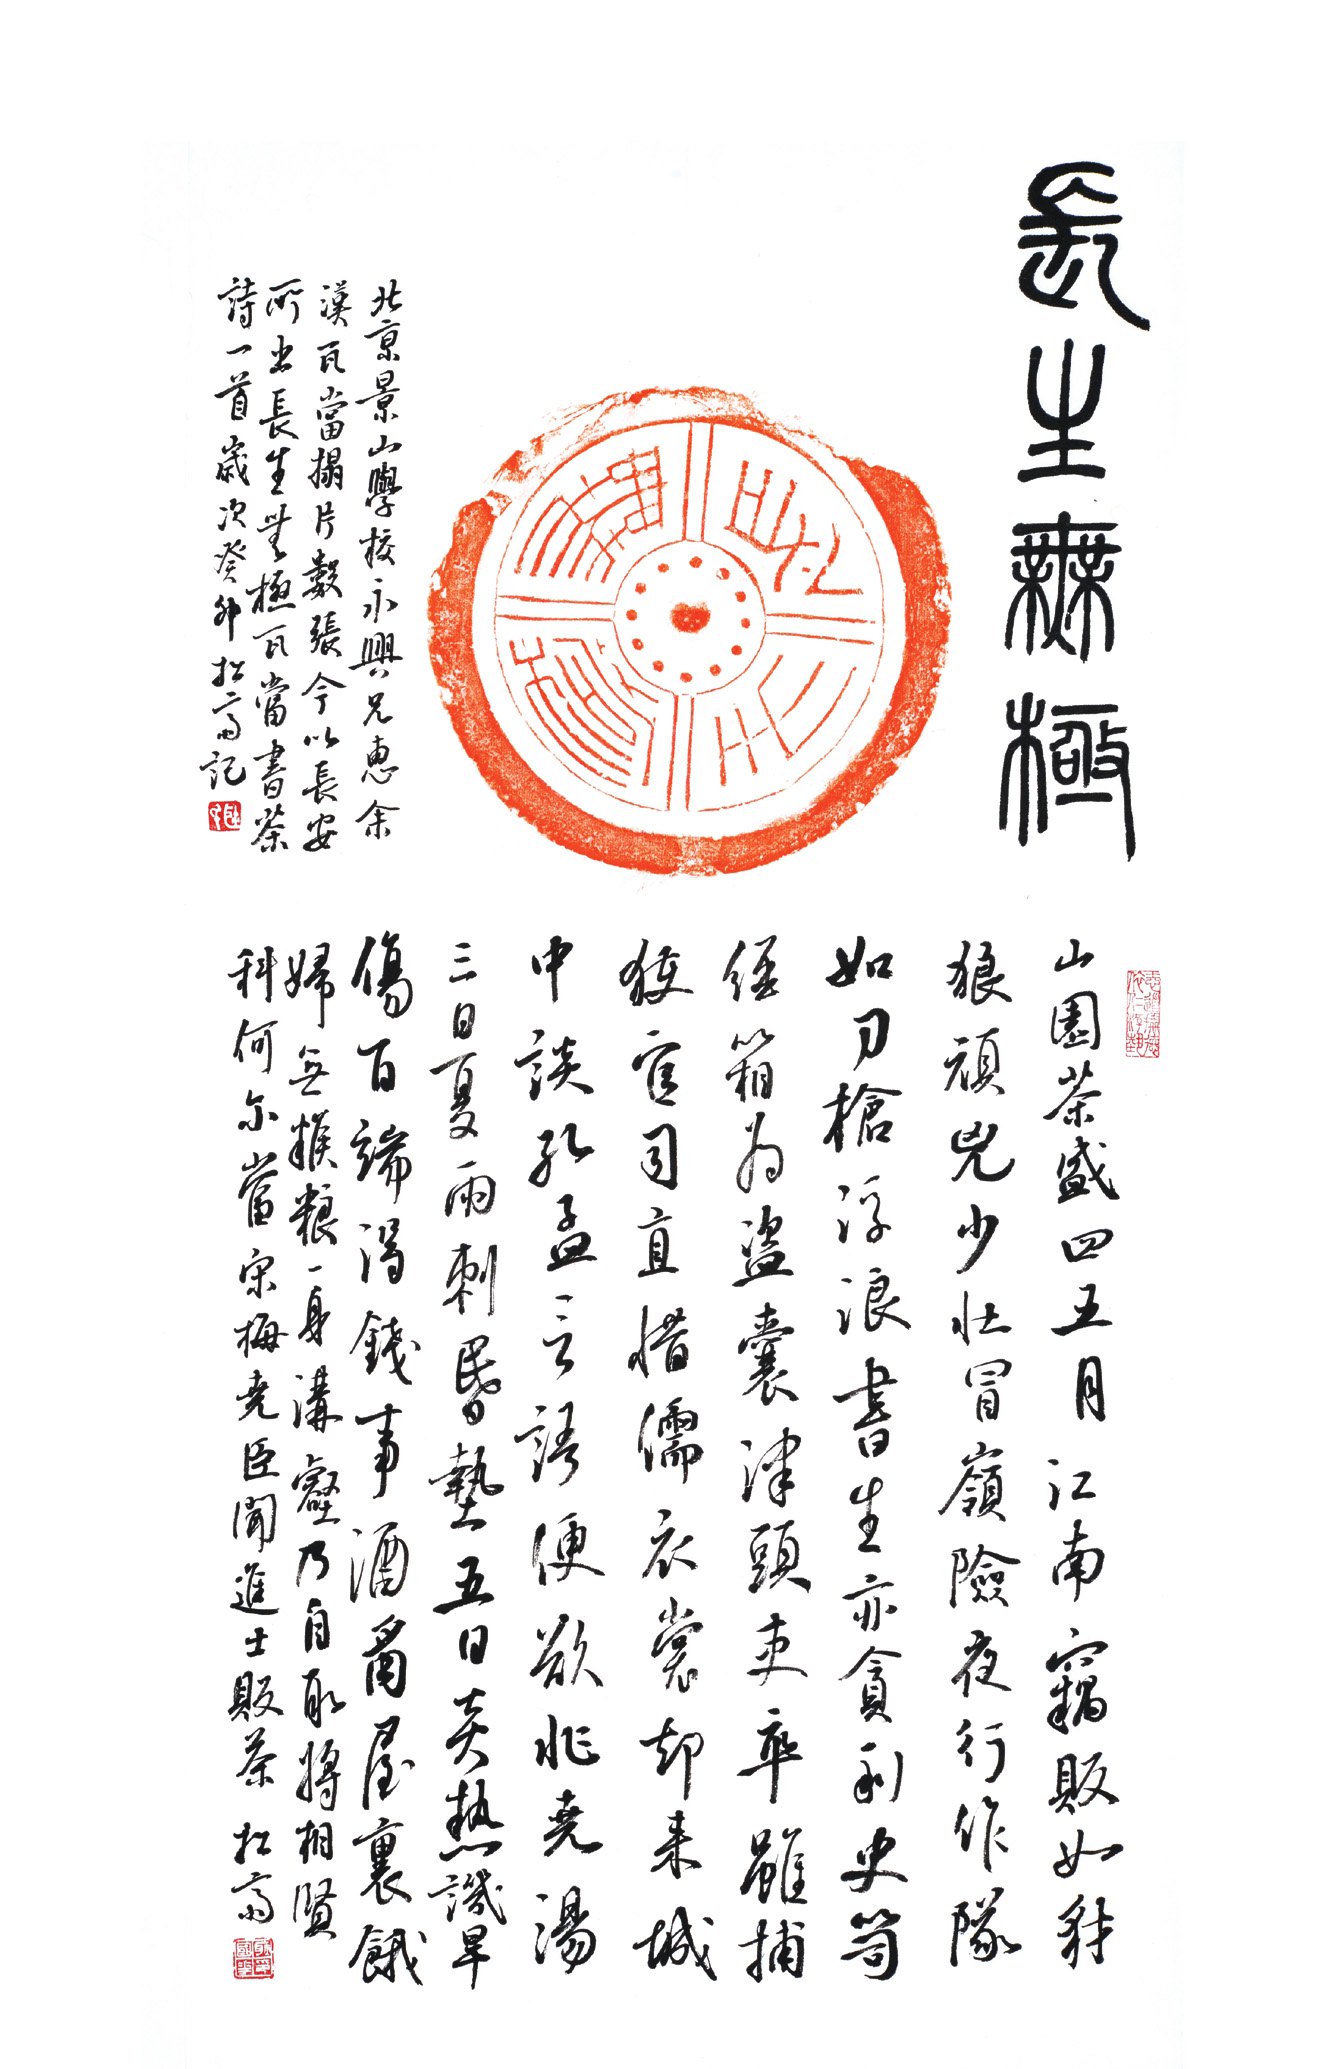 長生無極
山園茶盛四五月江南竊販如豺
狼頑兇少壯冒嶺險夜行作隊
如刀槍浮浪書生亦貪利史笥
經箱為盜囊津頭吏卒雖捕
獲官司直惜儒衣裳却來城
中談孔孟言語便欲非堯湯
三日夏雨刺昏墊五日炎熱譏旱
傷百端得錢事酒肴屋裏餓
婦無糇糧一身溝壑乃自取將相賢
科何尔當宋梅堯臣聞進士販茶 松高
北京景山學校永興兄惠余
漢瓦當搨片數張今以長安
所出長生無極瓦當書茶
詩一首歲次癸卯松高記